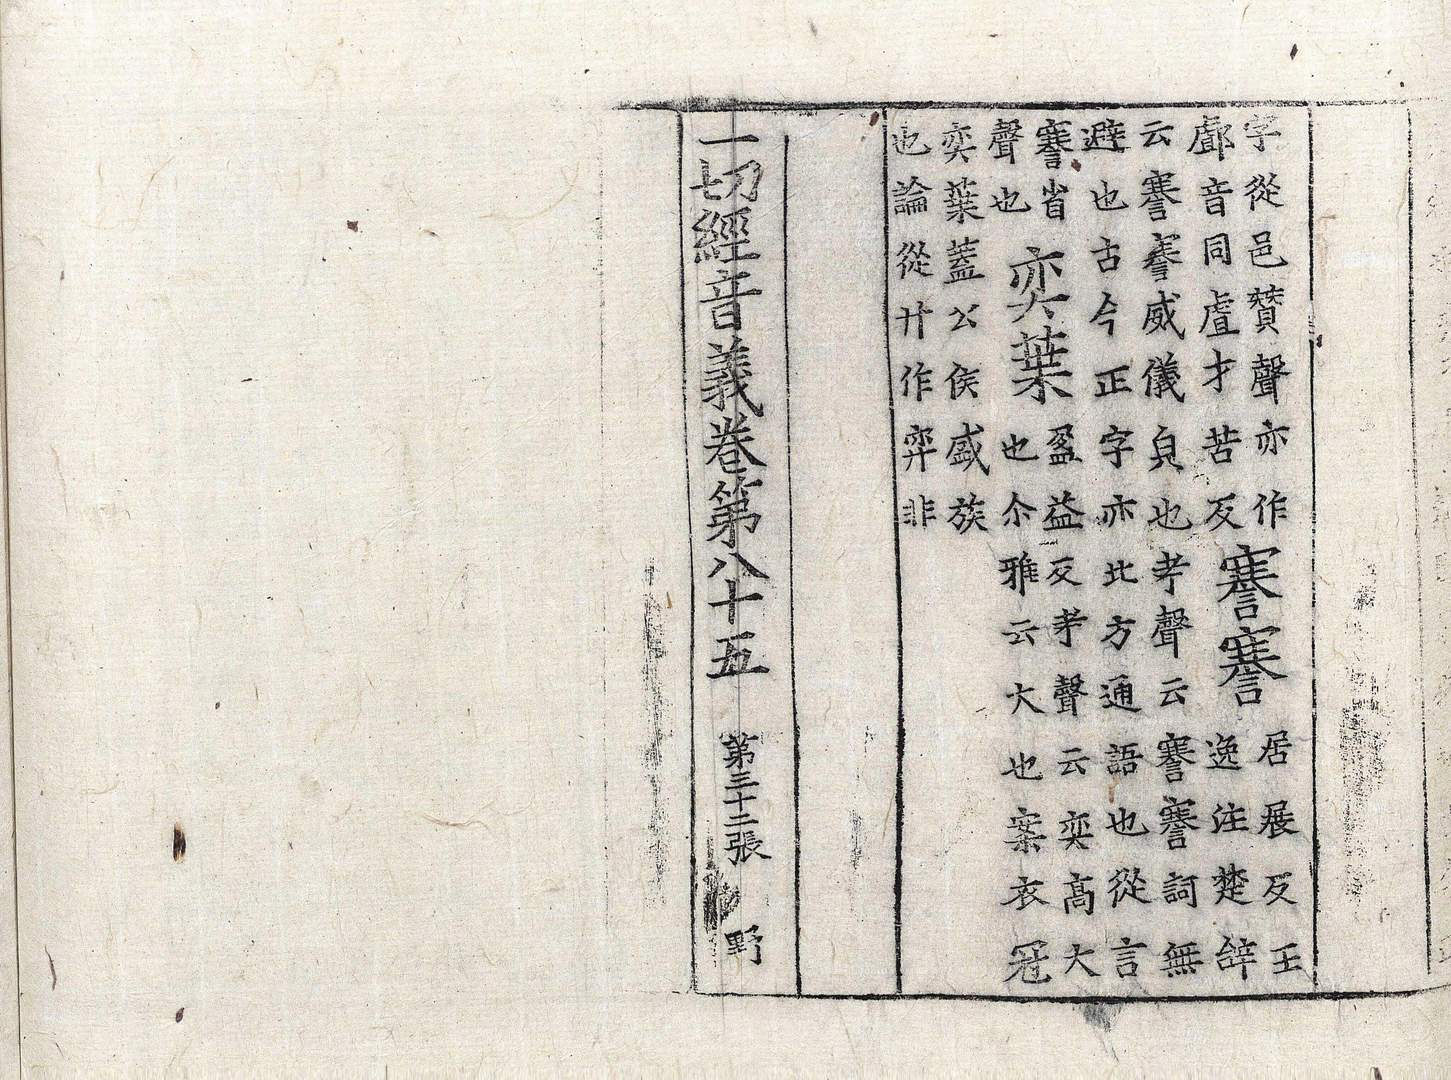 字從邑贊聲亦作
䣜音同虘才苦反
謇謇
居展反王
逸注楚辭
云謇謇威儀皃也考聲云謇謇詞無
避也古今正字亦北方通語也從言
謇省
聲也
奕葉
盈益反考聲云奕高大
也尒雅云大也案衣冠
奕葉蓋公侯盛族
也論從廾作弈非
一切經音義卷第八十五 第三十二張 野